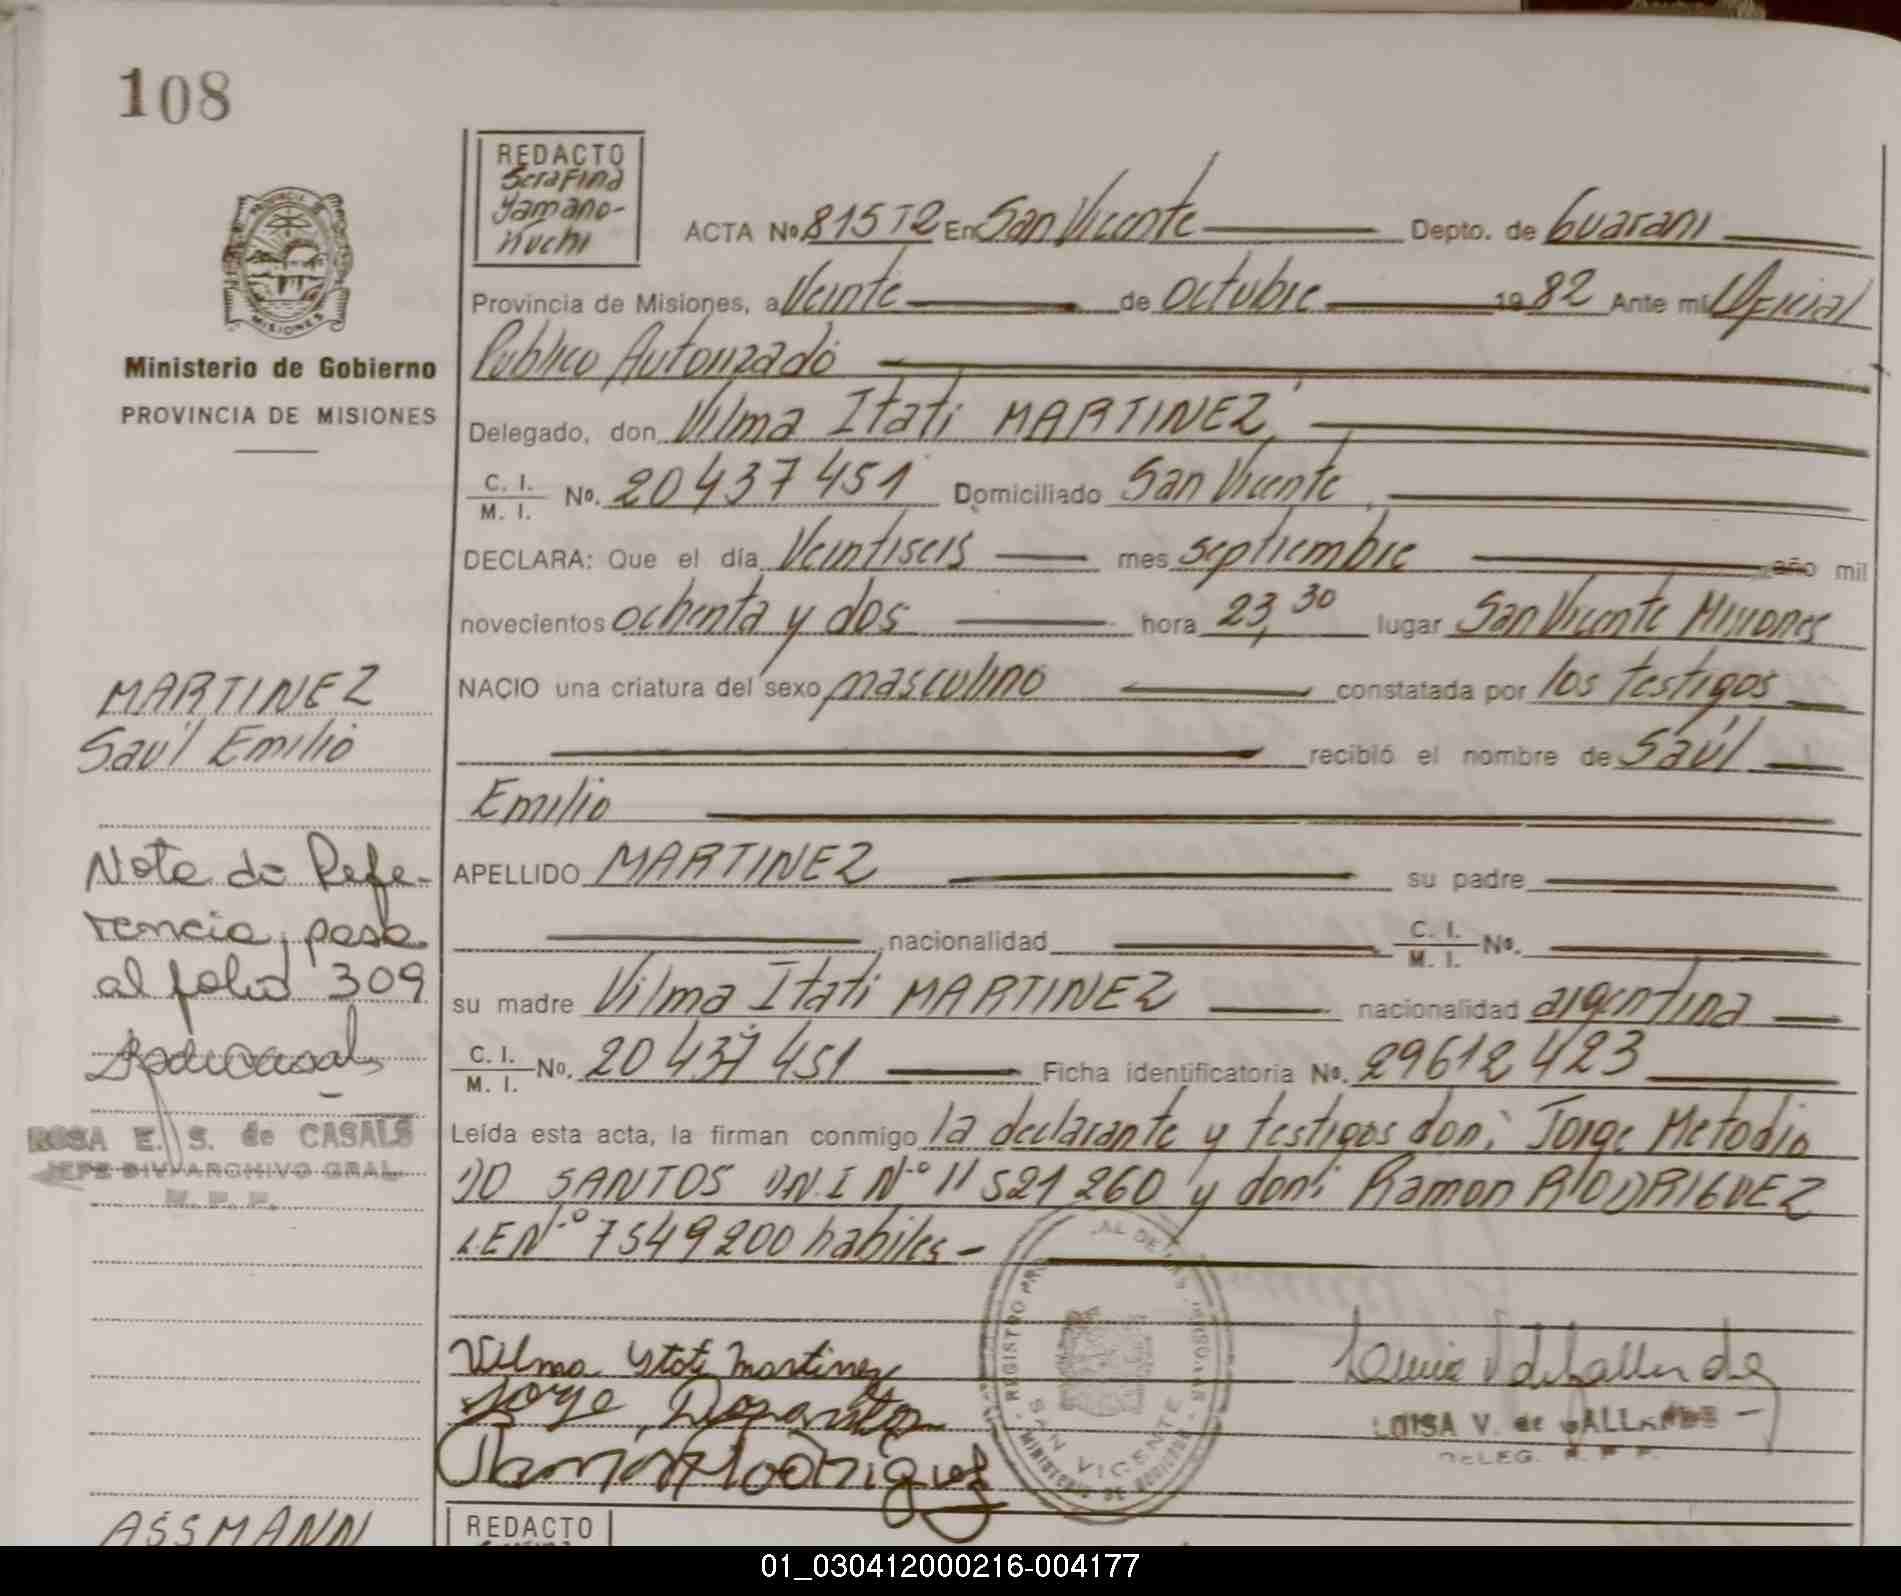 108
REDACTO
Serafina
Yamano-
nuchi
ACTA No. 815T2 En San Vicente Depto. de Guarani
Provincia de Misiones, a Veinte de Octubre 1982 Ante mi Oficial
Ministerio de Gobierno
PROVINCIA DE MISIONES
Publico Autorizado
Delegado, don Vilma Itati MARTINEZ,
C. I.
M. I. No. 20437451 Domiciliado San Vicente
DECLARA: Que el día Veintiseis mes septiembre año mil
novecientos ochenta y dos hora 23,30 lugar San Vicente Misiones
NACIO una criatura del sexo masculino constatada por los testigos
recibió el nombre de Saúl
Emilio
MARTINEZ
Saúl Emilio
APELLIDO MARTINEZ su padre
nacionalidad C. I.
M. I. No.
su madre Vilma Itati MARTINEZ nacionalidad argentina
C. I.
M. I. No. 20437451 Ficha identificatoria No. 29612423
Leída esta acta, la firman conmigo la declarante y testigos don: Jorge Metodio
DO SANTOS D.N.I N.º 11521260 y don: Ramon RODRIGUEZ
L.E N.º 7549200 habiles-
Nota de Refe-
rencia, pasa
al folio 309
ROSA E. S. de CASALS
JEFE DIV. ARCHIVO GRAL.
R. P. P.
Vilma Ytati Martinez
Jorge Dosantos
Ramon Rodriguez
REGISTRO PROVINCIAL DE LAS PERSONAS
SAN VICENTE
LUISA V. de GALLARDE
DELEG. R. P. P.
ASSMANN
REDACTO
01_030412000216-004177